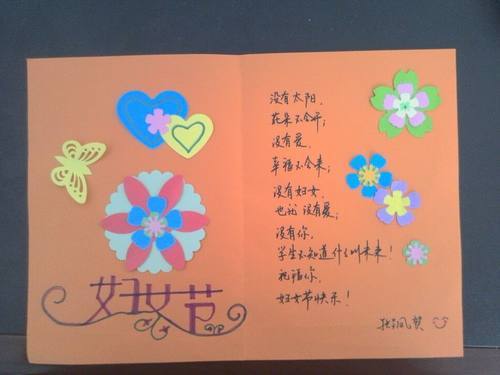 妇女节
没有太阳,
花朵不会开;
没有爱,
幸福不会来;
没有妇女,
也就没有爱;
没有你,
学生不知道什么叫未来!
祝福你,
妇女节快乐!
贺